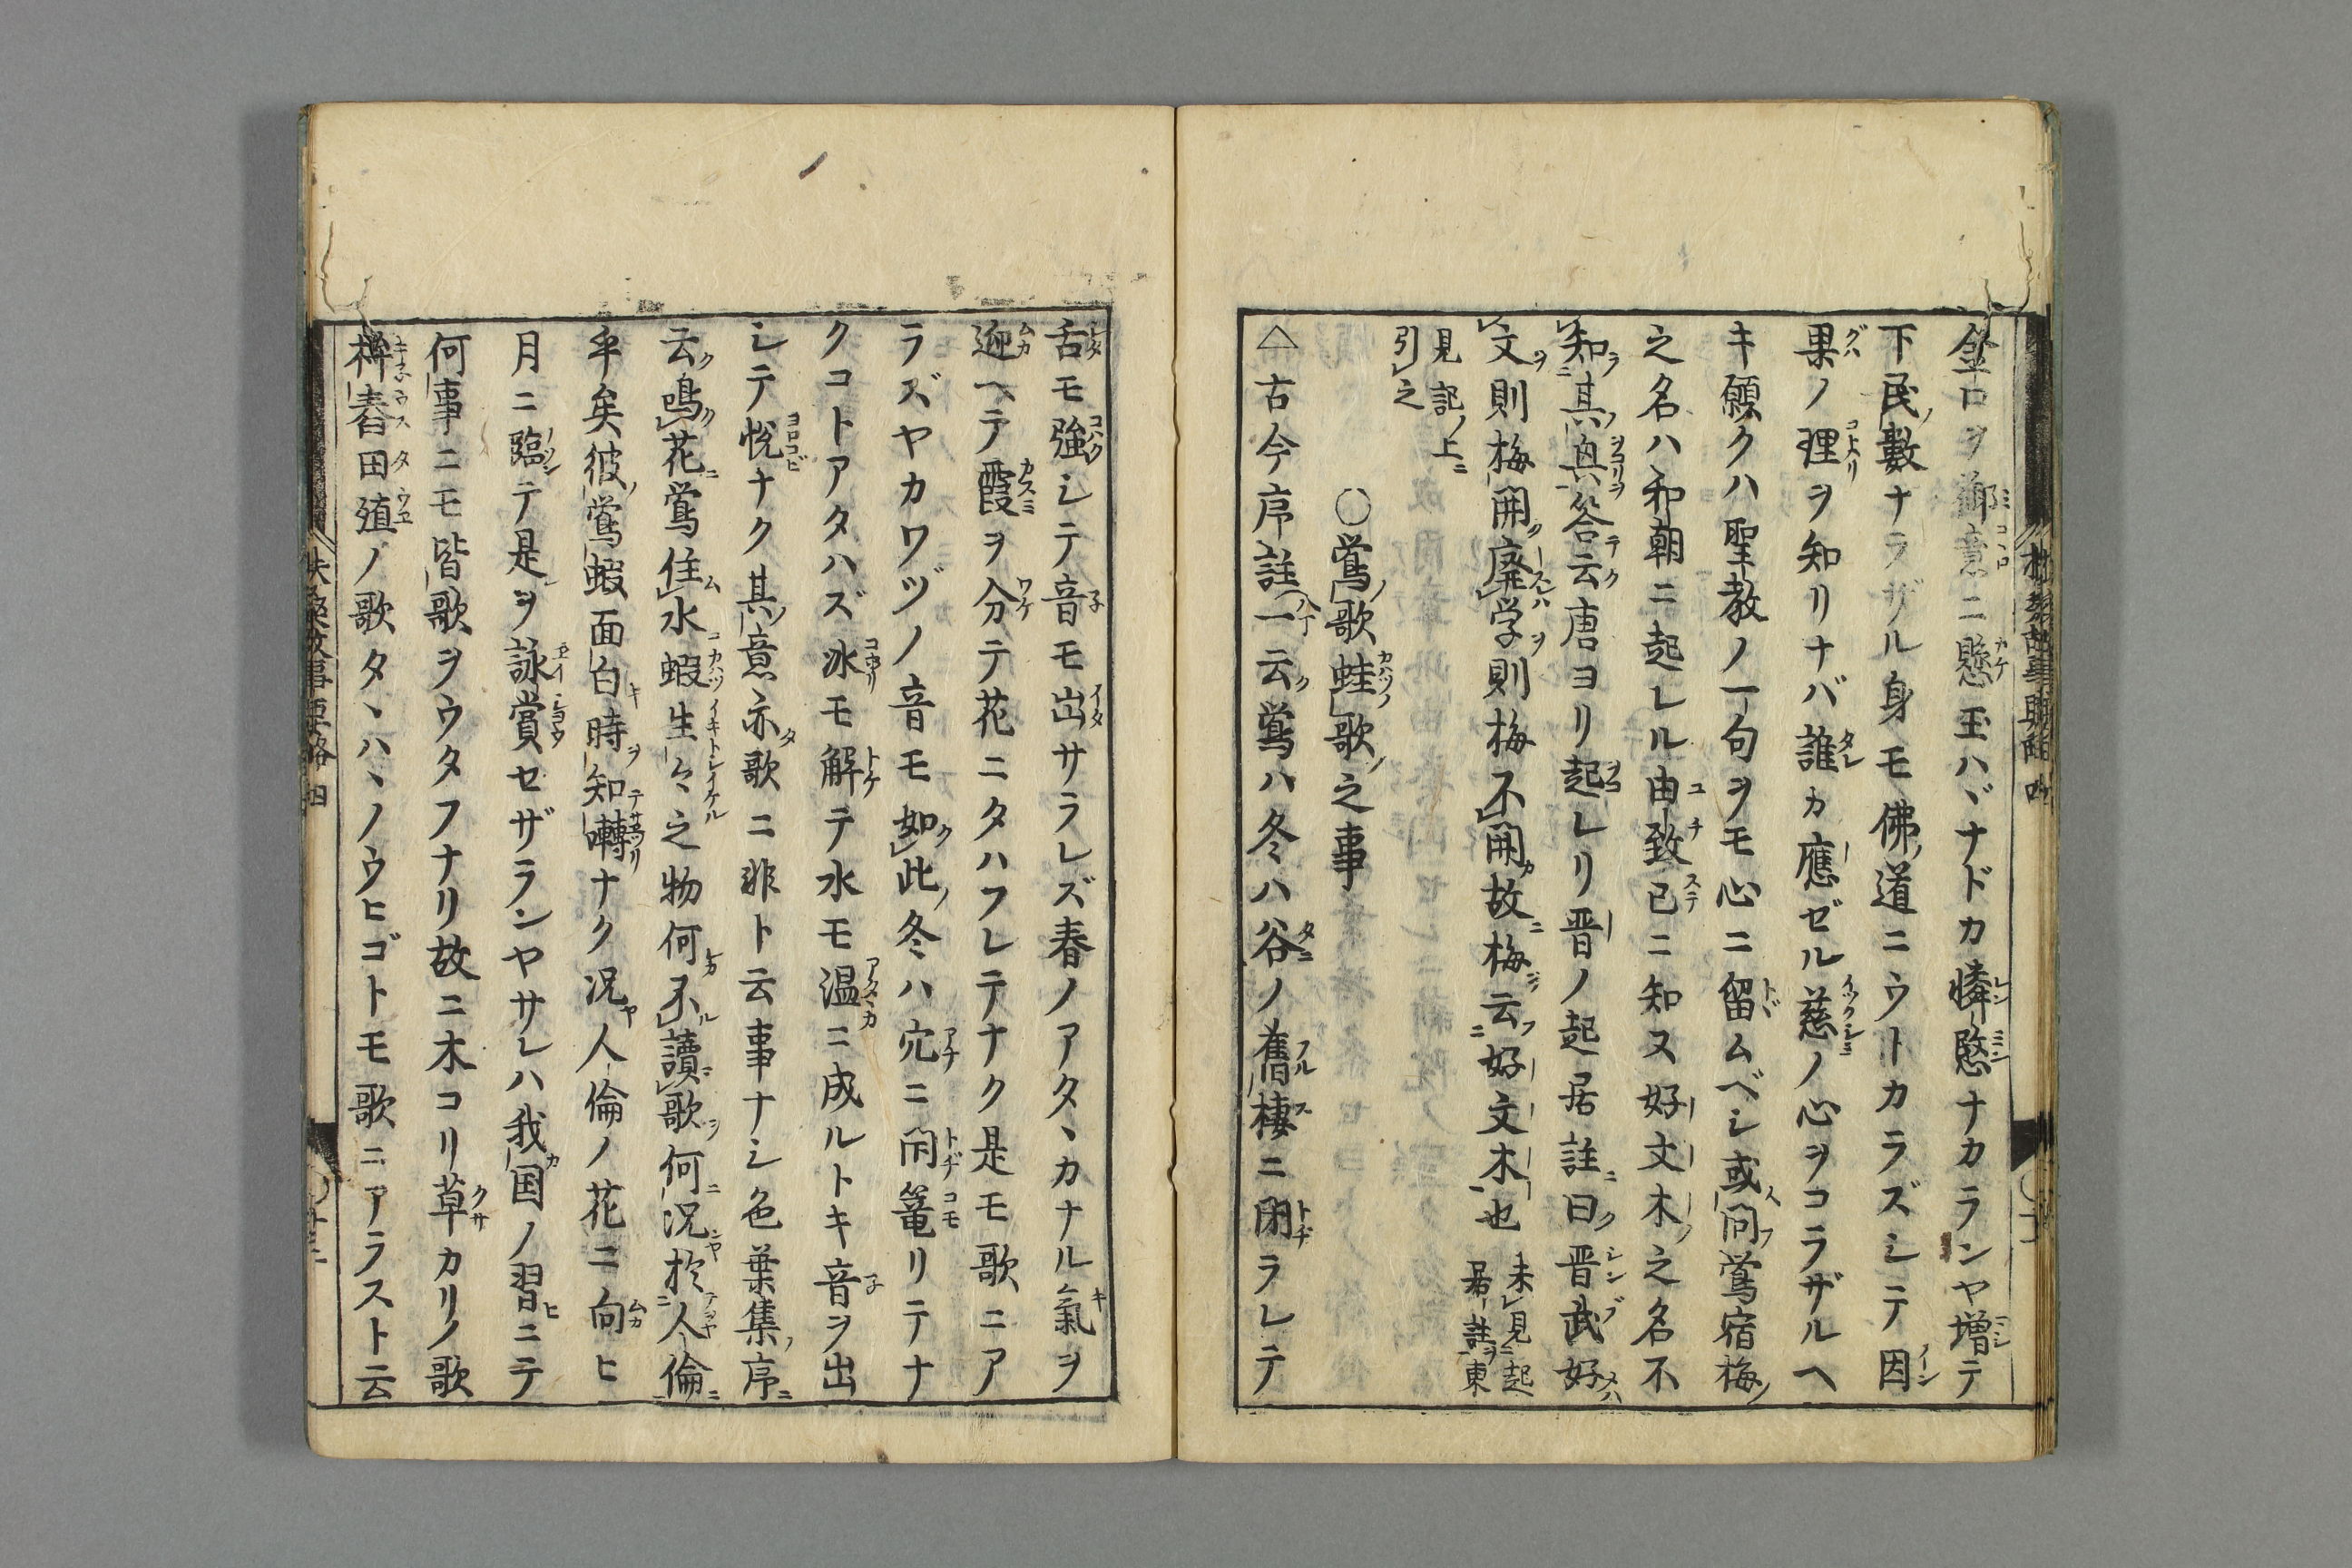 金口ヲ御意ニ懸玉ハヾナドカ憐愍ナカランヤ増テ
下民數ナラザル身モ佛道ニウトカラズシテ因
果ノ理ヲ知リナバ誰カ應ゼル慈ノ心ヲコラザルヘ
キ願クハ聖教ノ一句ヲモ心ニ留ムベシ或問鶯宿梅
之名ハ和朝ニ起レル由致已ニ知ヌ好文木之名不
知其真答云唐ヨリ起レリ晋ノ起居註曰晋武好
文則梅開廃学則梅不開故梅云好文木也 未見起居註東
見記上
引之
〇鶯歌蛙歌之事
△古今序註一云鶯ハ冬ハ谷ノ舊棲ニ閉ラレテ
舌モ強シテ音モ出サラレズ春ノアタヽカナル氣ヲ
迎ヘテ霞ヲ分テ花ニタハフレテナク是モ歌ニア
ラズヤカワヅノ音モ如此冬ハ穴ニ閇篭リテナ
クコトアタハズ氷モ解テ水モ温ニ成ルトキ音ヲ出
シテ悦ナク其意亦歌ニ非ト云事ナシ色葉集序
云鳴花鶯住水蝦生々之物何不讀歌何況於人倫
乎矣彼鶯蝦面白時知囀ナク況人倫ノ花ニ向ヒ
月ニ臨テ是ヲ詠賞セザランヤサレハ我国ノ習ニテ
何事ニモ皆歌ヲウタフナリ故ニ木コリ草カリノ歌
舂田殖ノ歌タヽハヽノウヒゴトモ歌ニアラスト云
扶桑故事要略 四